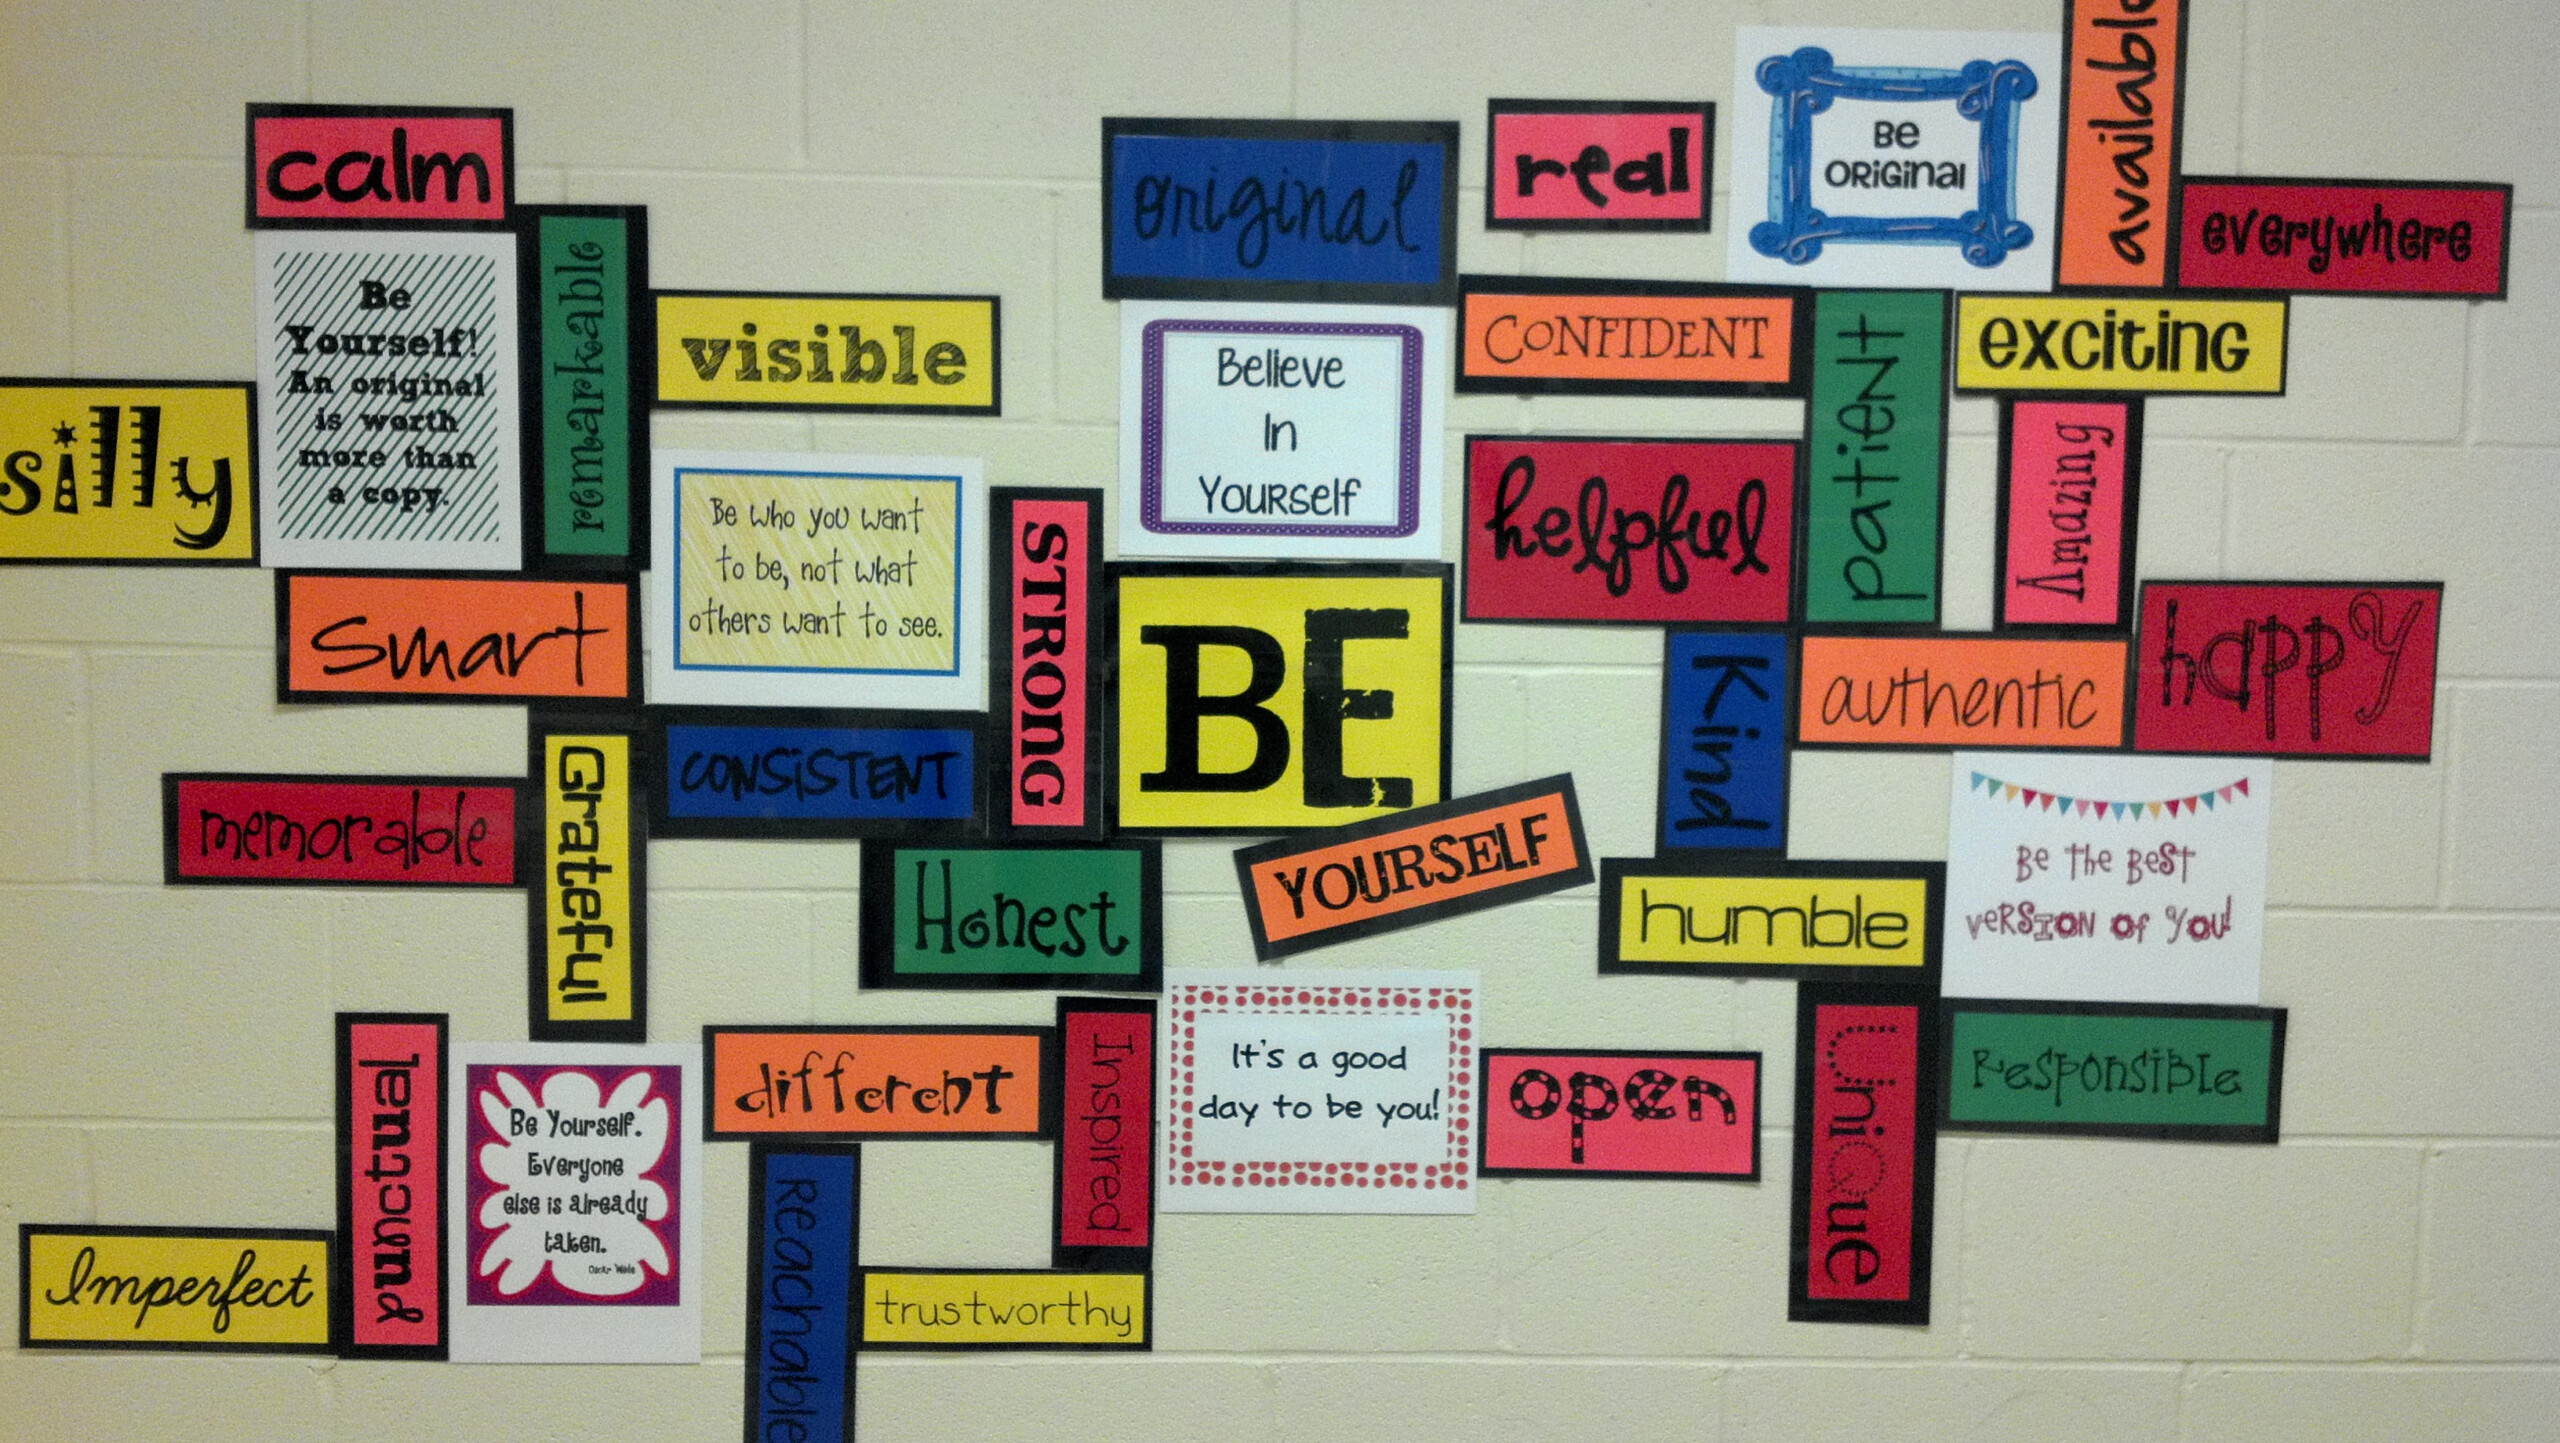 calm
Be
Yourself!
An original
is worth
more than
a copy.
remarkable
visible
silly
smart
Be who you want
to be, not what
others want to see.
STRONG
CONSISTENT
memorable
Grateful
Honest
original
real
Be
original
available
everywhere
Believe
In
Yourself
CONFIDENT
patient
exciting
helpful
Amazing
BE
YOURSELF
Kind
authentic
happy
humble
Be the Best
version of you!
punctual
Be Yourself.
Everyone
else is already
taken.
Oscar Wilde
Imperfect
different
Inspired
Reachable
trustworthy
It's a good
day to be you!
open
Unique
Responsible